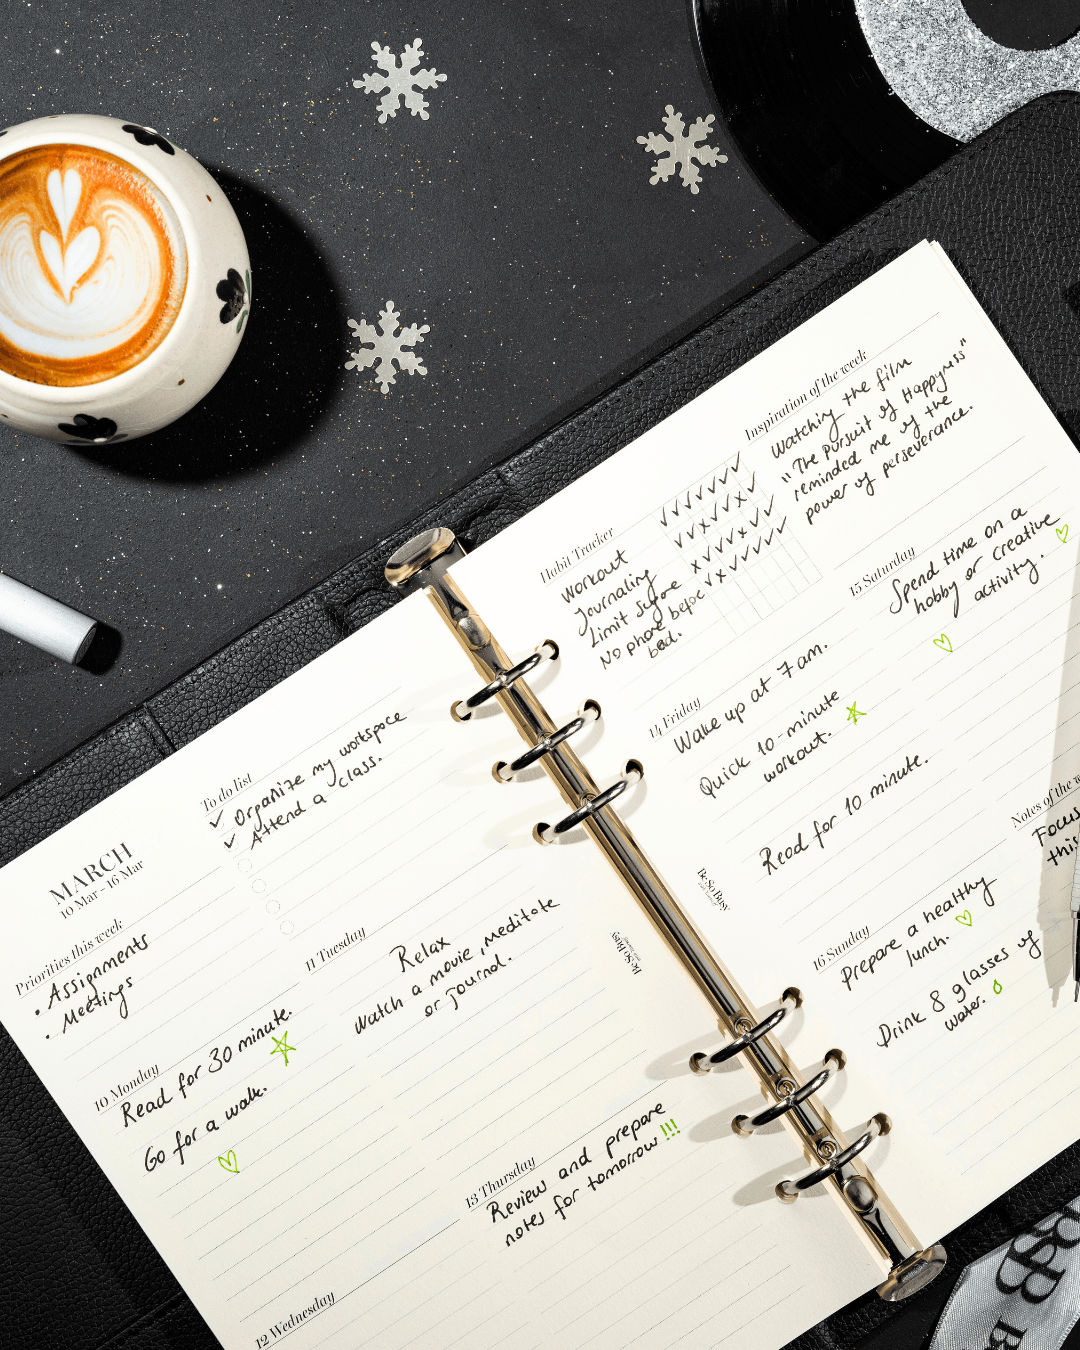 MARCH
10 Mar - 16 Mar
Priorities this week
• Assignments
• Meetings
To do list
✓ Organize my workspace
✓ Attend a class.
10 Monday
Read for 30 minute.
Go for a walk.
11 Tuesday
Relax
Watch a movie, meditate
or journal.
12 Wednesday
13 Thursday
Review and prepare
notes for tomorrow!!!
Be So Busy
Habit Tracker
Workout
Journaling
Limit
No phone before
bed.
✓✓✓✓✓✓✓
✓✓x✓✓x✓
x✓✓✓x✓✓
✓x✓✓✓✓✓
Inspiration of the week
Watching the film
"The Pursuit of Happyness"
reminded me of the
power of perseverance.
14 Friday
Wake up at 7 am.
Quick 10-minute
workout.
Read for 10 minute.
15 Saturday
Spend time on a
hobby or creative
activity.
Be So Busy
16 Sunday
Prepare a healthy
lunch.
Drink 8 glasses of
water.
Notes of the
Focus
this